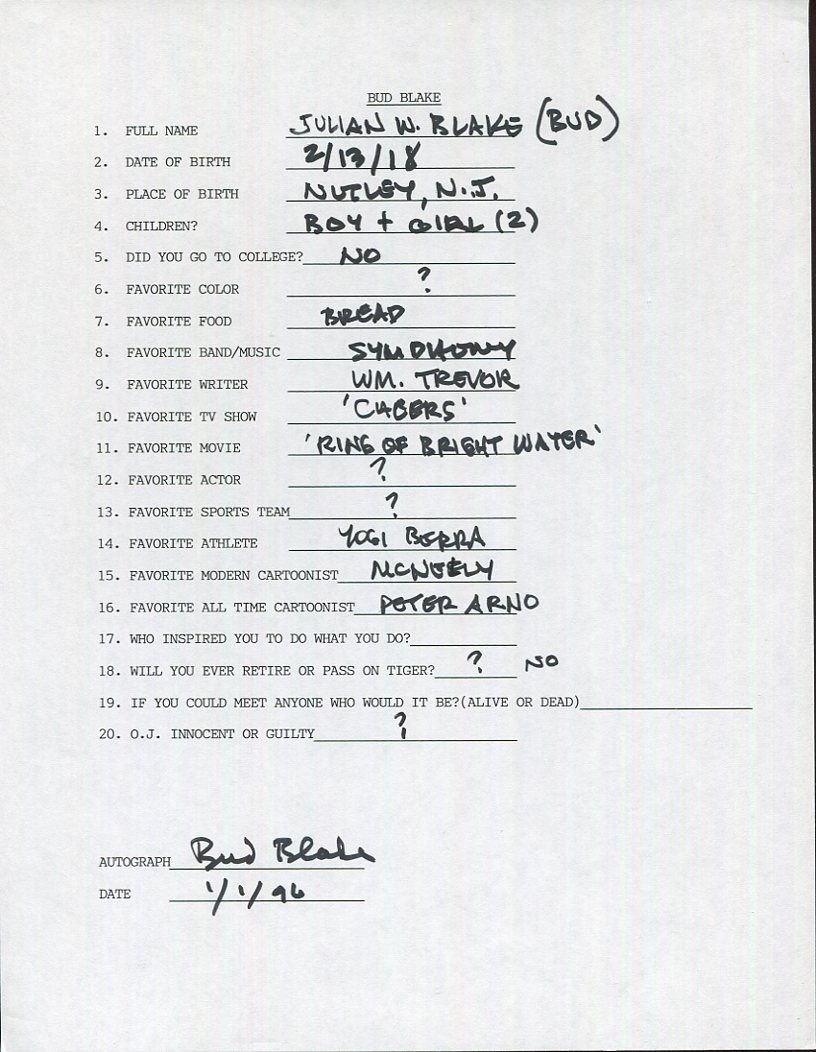 BUD BLAKE
1. FULL NAME JULIAN W. BLAKE (BUD)
2. DATE OF BIRTH 2/13/18
3. PLACE OF BIRTH NUTLEY, N.J.
4. CHILDREN? BOY + GIRL (2)
5. DID YOU GO TO COLLEGE? NO
6. FAVORITE COLOR ?
7. FAVORITE FOOD BREAD
8. FAVORITE BAND/MUSIC SYMPHONY
9. FAVORITE WRITER WM. TREVOR
10. FAVORITE TV SHOW 'CHEERS'
11. FAVORITE MOVIE 'RING OF BRIGHT WATER'
12. FAVORITE ACTOR ?
13. FAVORITE SPORTS TEAM ?
14. FAVORITE ATHLETE YOGI BERRA
15. FAVORITE MODERN CARTOONIST MCNEELY
16. FAVORITE ALL TIME CARTOONIST PETER ARNO
17. WHO INSPIRED YOU TO DO WHAT YOU DO?
18. WILL YOU EVER RETIRE OR PASS ON TIGER? ? NO
19. IF YOU COULD MEET ANYONE WHO WOULD IT BE?(ALIVE OR DEAD)
20. O.J. INNOCENT OR GUILTY ?
AUTOGRAPH Bud Blake
DATE 1/1/96